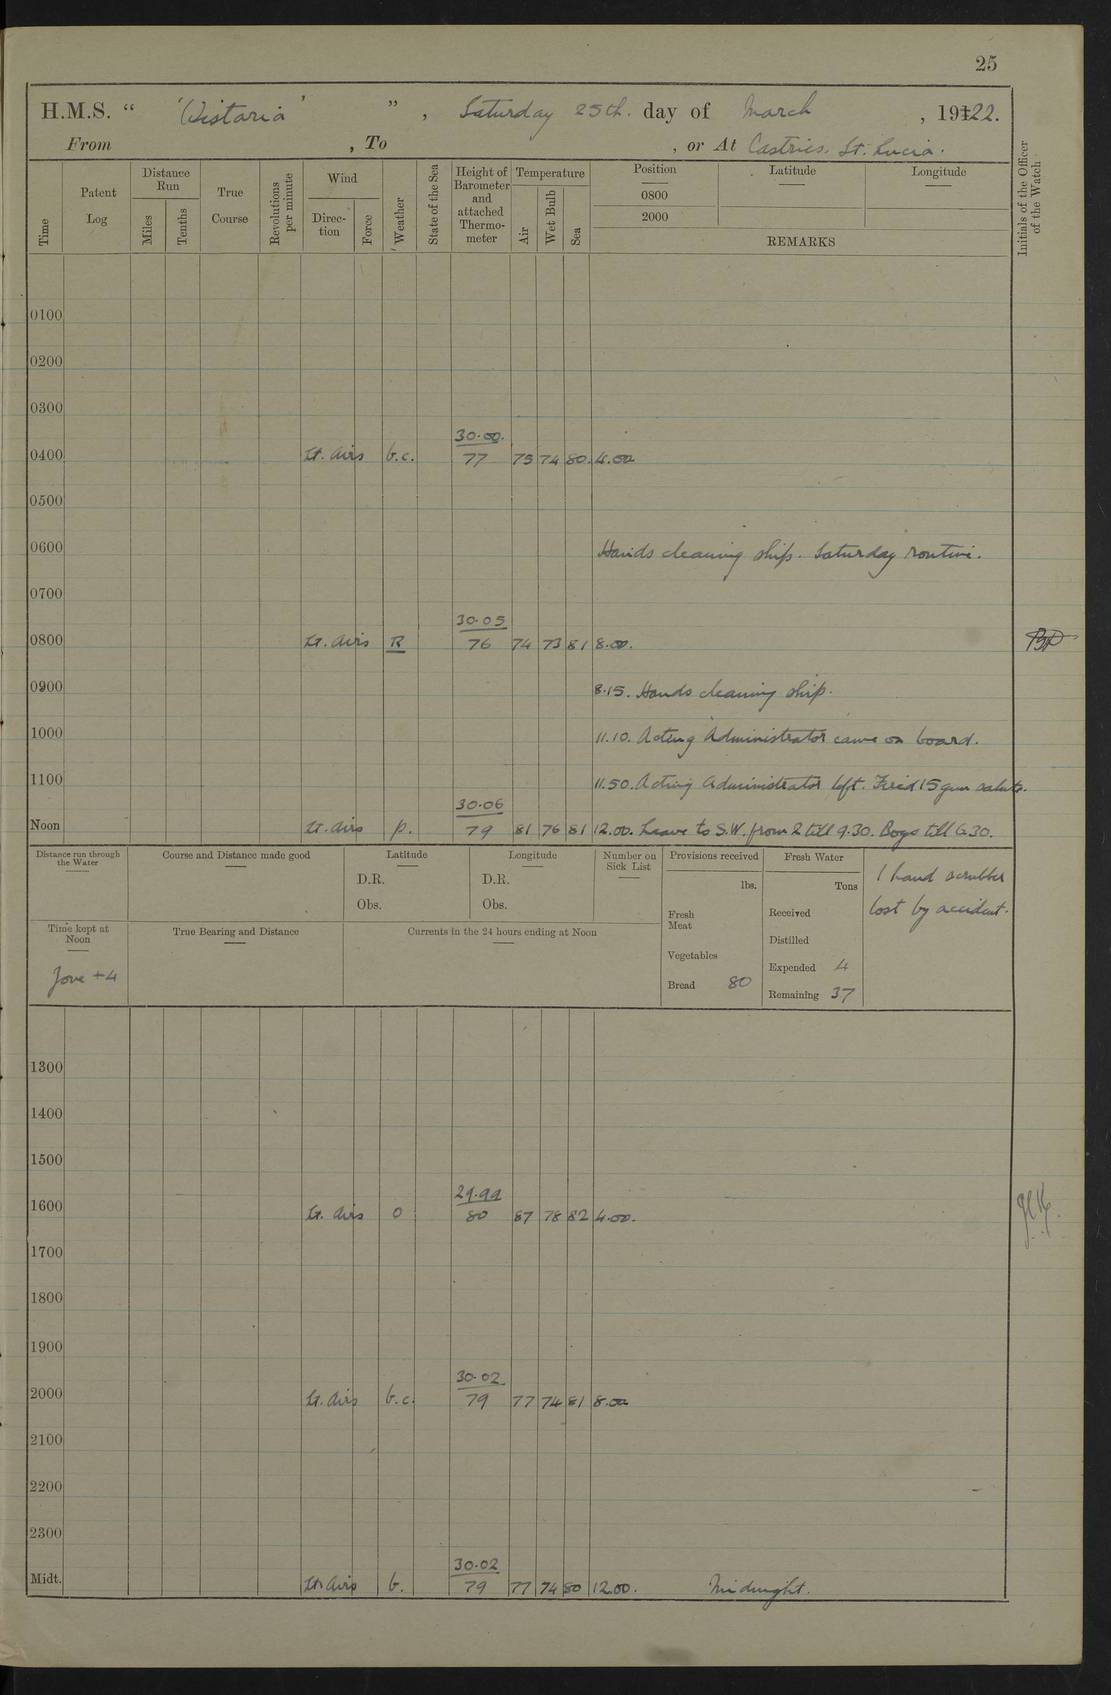 25
H.M.S. “ 'Wistaria' ” , Saturday 25th. day of March , 19122.
From , To , or At Castries. St. Lucia.
Time
Patent Log
Distance Run
Miles
Tenths
True Course
Revolutions per minute
Wind
Direc-tion
Force
Weather
State of the Sea
Height of Barometer and attached Thermo-meter
Temperature
Air
Wet Bulb
Sea
Position
0800
2000
Latitude
Longitude
REMARKS
Initials of the Officer of the Watch
0100
0200
0300
30.00.
0400 Lt. airs b.c. 77 75 74 80. 4.00
0500
0600 Hands cleaning ship. Saturday routine.
0700
30.05
0800 Lt. airs R 76 74 73 81 8.00.
0900 8.15. Hands cleaning ship.
1000 11.10. Acting Administrator came on board.
1100 11.50. Acting Administrator left. Fired 15 gun salute.
30.06
Noon Lt. airs p. 79 81 76 81 12.00. Leave to S.W. from 2 till 9.30. Boys till 6.30.
Distance run through the Water
Course and Distance made good
Latitude
D.R.
Obs.
Longitude
D.R.
Obs.
Number on Sick List
Provisions received
lbs.
Fresh Meat
Vegetables
Bread 80
Fresh Water
Tons
Received
Distilled
Expended 4
Remaining 37
1 hand scrubber
lost by accident.
Time kept at Noon
Zone +4
True Bearing and Distance
Currents in the 24 hours ending at Noon
1300
1400
1500
29.99
1600 Lt. airs o 80 87 78 82 4.00.
1700
1800
1900
30.02
2000 Lt. airs b.c. 79 77 74 81 8.00
2100
2200
2300
30.02
Midt. Lt. airs b. 79 77 74 80 12.00. Midnight.